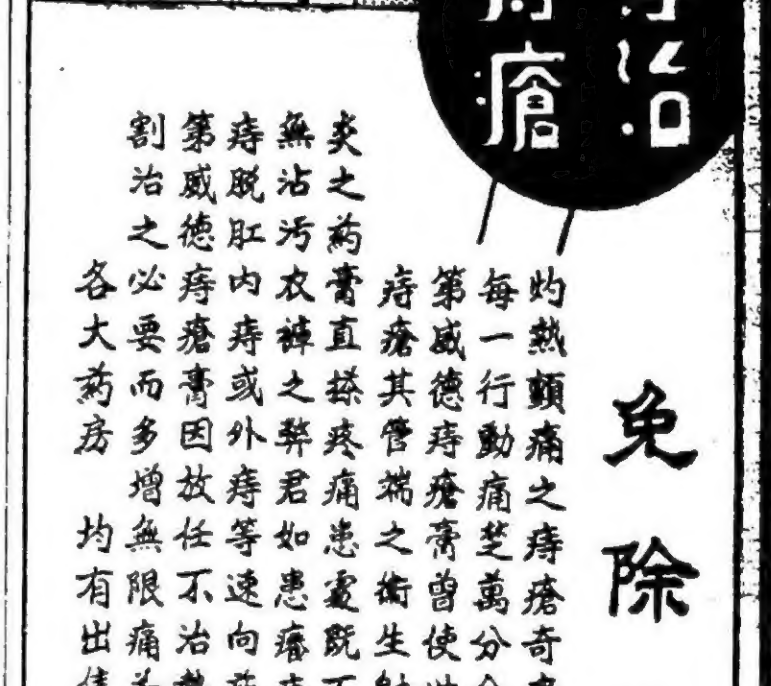 治
瘡
免除
灼熱顫痛之痔瘡奇
每一行動痛楚萬分
第威德痔瘡膏曾使
痔瘡其管端之衛生
炎之葯膏直搽疼痛患處既
無沾汚衣褲之弊君如患癢
痔脫肛內痔或外痔等速向
第威德痔瘡膏因放任不治
割治之必要而多增無限痛
各大葯房 均有出